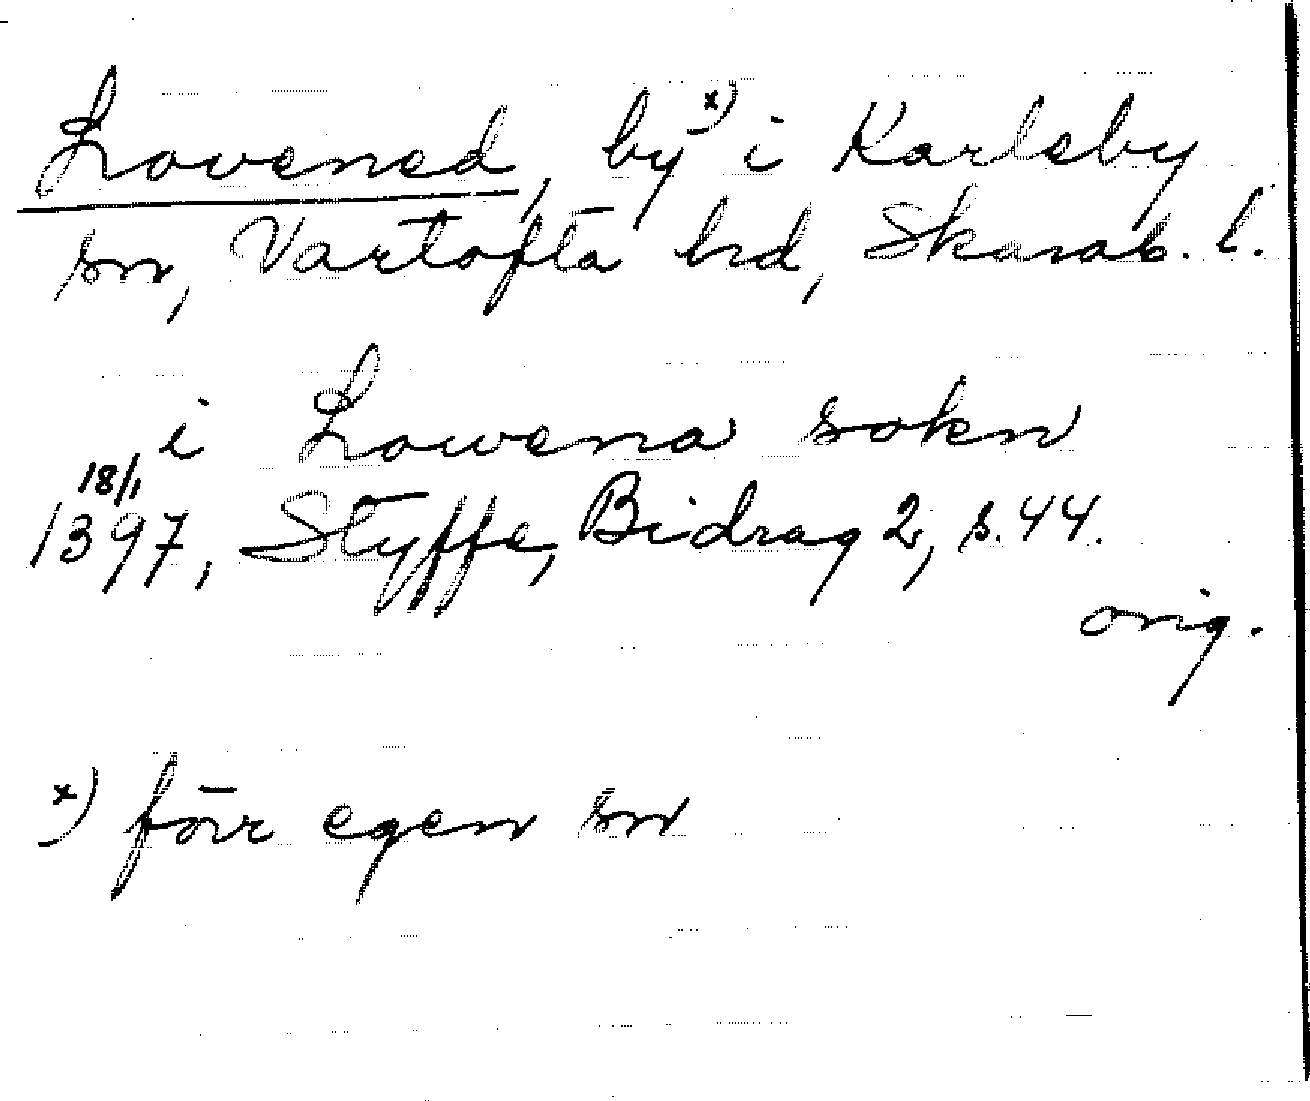 Lovened, by x) i Karleby
sn, Vartofta hd, Skarab. l.
i Lowena sokn
18/1
1397, Styffe, Bidrag 2, s. 44.
orig.
x) förr egen sn